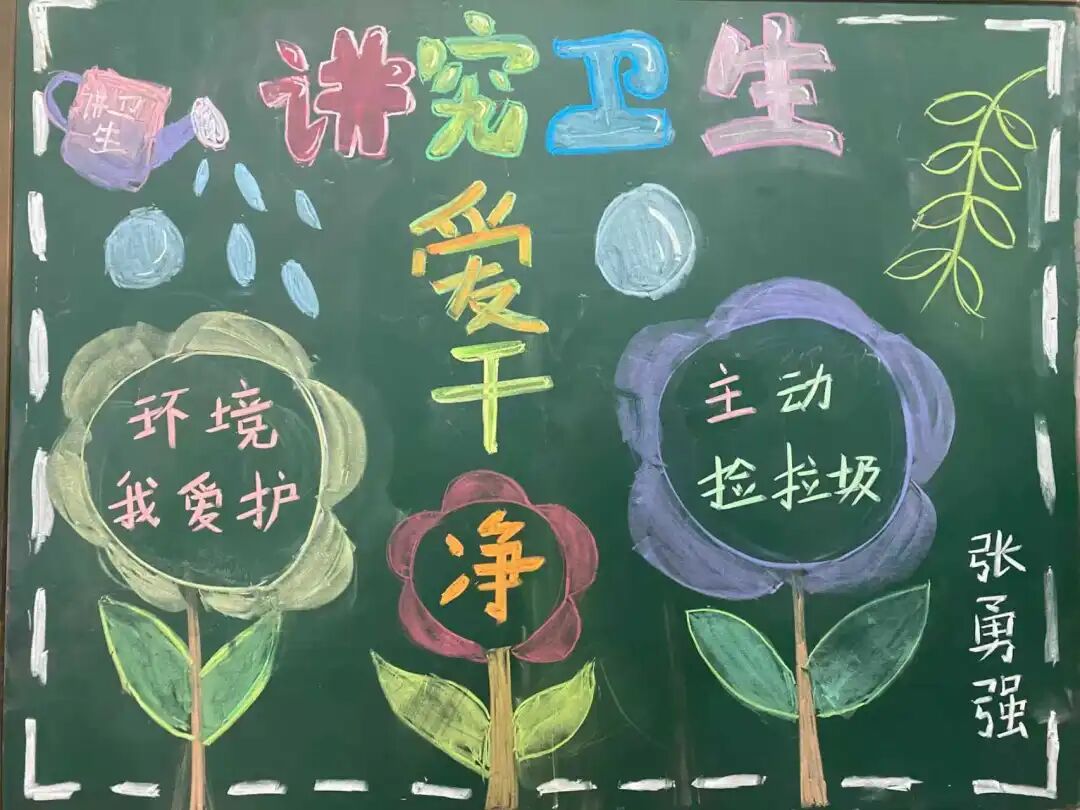 讲究卫生
讲卫
生
爱
干
净
环境
我爱护
主动
捡垃圾
张
勇
强